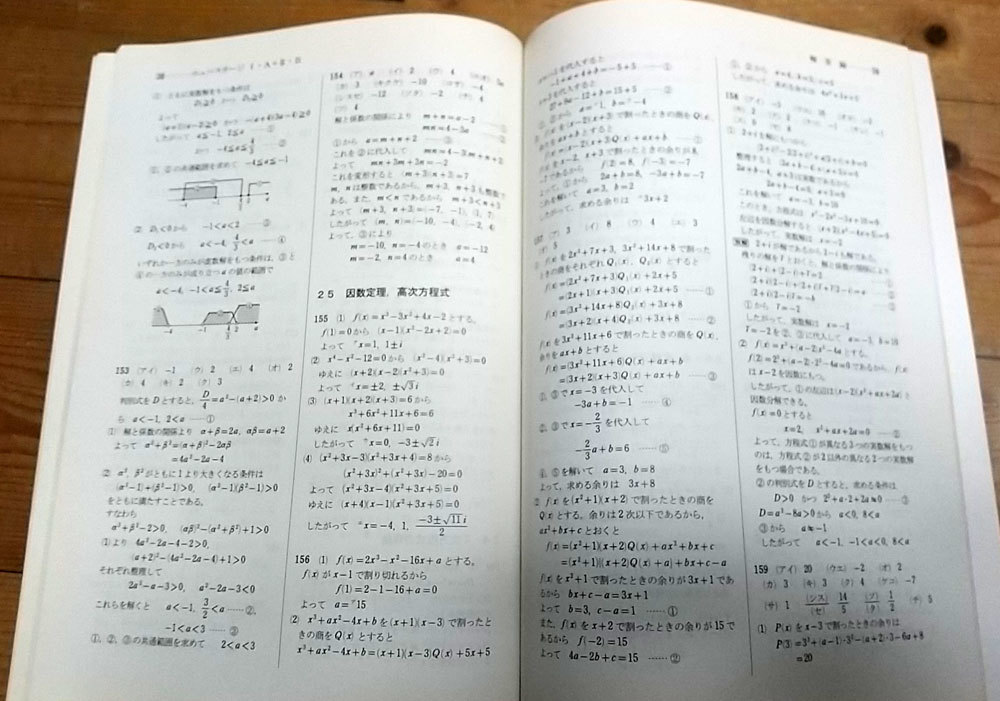 ニューステージ Ⅰ・A+Ⅱ・B
① ともに実数解をもつ条件は
よって
したがって a≦-1, 2≦a
かつ -4≦a≦4/3
①, ②の共通範囲を求めて -4≦a≦-1
② D₁<0から -1<a<2 ……③
D₂<0から a<-4, 4/3<a ……④
いずれか一方のみが虚数解をもつ条件は, ③と
④の一方のみが成り立つaの値の範囲で
a<-4, -1<a≦4/3, 2≦a
153 (アイ) -1 (ウ) 2 (エ) 4 (オ) 2
(カ) 4 (キ) 2 (ク) 3
判別式をDとすると, D/4=a²-(a+2)>0か
ら a<-1, 2<a ……①
(1) 解と係数の関係より α+β=2a, αβ=a+2
よって α²+β²=(α+β)²-2αβ
=4a²-2a-4
(2) α², β²がともに1より大きくなる条件は
(α²-1)+(β²-1)>0, (α²-1)(β²-1)>0
をともに満たすことである。
すなわち
α²+β²-2>0, (αβ)²-(α²+β²)+1>0
(1)より 4a²-2a-4-2>0,
(a+2)²-(4a²-2a-4)+1>0
それぞれ整理して
2a²-a-3>0, a²-2a-3<0
これらを解くと a<-1, 3/2<a ……②,
-1<a<3 ……③
①, ②, ③の共通範囲を求めて 2<a<3
154
(カ) 3 (キクケ) -10 (コサ) -4
(シスセ) -12 (ソタ) -2 (チ) 4
(ツ) 4
解と係数の関係により m+n=a-2
mn=4-3a
①から a=m+n+2 ……③
これを②に代入して mn=4-3(m+n+2)
よって mn+3m+3n=-2
これを変形すると (m+3)(n+3)=7
m, nは整数であるから, m+3, n+3も整数で
ある。また, m<nであるから m+3<n+3
よって (m+3, n+3)=(-7, -1), (1, 7)
したがって (m, n)=(-10, -4), (-2, 4)
よって, ③により
m=-10, n=-4のとき a=-12
m=-2, n=4のとき a=4
25 因数定理, 高次方程式
155 (1) f(x)=x³-3x²+4x-2とする。
f(1)=0から (x-1)(x²-2x+2)=0
よって x=1, 1±i
(2) x⁴-x²-12=0から (x²-4)(x²+3)=0
ゆえに (x+2)(x-2)(x²+3)=0
よって x=±2, ±√3i
(3) (x+1)(x+2)(x+3)=6から
x³+6x²+11x+6=6
ゆえに x(x²+6x+11)=0
したがって x=0, -3±√2i
(4) (x²+3x-3)(x²+3x+4)=8から
(x²+3x)²+(x²+3x)-20=0
よって (x²+3x-4)(x²+3x+5)=0
ゆえに (x+4)(x-1)(x²+3x+5)=0
したがって x=-4, 1, (-3±√11i)/2
156 (1) f(x)=2x³-x²-16x+aとする。
f(x)がx-1で割り切れるから
f(1)=2-1-16+a=0
よって a=15
(2) x³+ax²-4x+bを(x+1)(x-3)で割ったと
きの商をQ(x)とすると
x³+ax²-4x+b=(x+1)(x-3)Q(x)+5x+5
を代入すると
-1+a+4+b=-5+5 ……①
を代入すると
27+9a-12+b=15+5 ……②
①, ②から a=-1, b=-4
f(x)を(x-2)(x+3)で割ったときの商をQ(x),
余りをax+bとすると
f(2)=8, f(-3)=-7
よって, ①から 2a+b=8, -3a+b=-7
これを解いて a=3, b=2
したがって, 求める余りは 3x+2
157 (ア) 3 (イ) 8 (ウ) 4 (エ) 3
(オ) 5
f(x)を2x²+7x+3, 3x²+14x+8で割った
ときの商をそれぞれQ₁(x), Q₂(x)とすると
f(x)=(2x²+7x+3)Q₁(x)+2x+5
=(2x+1)(x+3)Q₁(x)+2x+5 ……①
f(x)=(3x²+14x+8)Q₂(x)+3x+8
=(3x+2)(x+4)Q₂(x)+3x+8 ……②
f(x)を3x²+11x+6で割ったときの商をQ(x),
余りをax+bとすると
f(x)=(3x²+11x+6)Q(x)+ax+b
=(3x+2)(x+3)Q(x)+ax+b ……③
①, ③でx=-3を代入して
-3a+b=-1 ……④
②, ③でx=-2/3を代入して
-2/3a+b=6 ……⑤
④, ⑤を解いて a=3, b=8
よって, 求める余りは 3x+8
② f(x)を(x²+1)(x+2)で割ったときの商を
Q(x)とする。余りは2次以下であるから,
ax²+bx+cとおくと
f(x)=(x²+1)(x+2)Q(x)+ax²+bx+c
=(x²+1){(x+2)Q(x)+a}+bx+c-a
f(x)をx²+1で割ったときの余りが3x+1であ
るから bx+c-a=3x+1
よって b=3, c-a=1 ……①
また, f(x)をx+2で割ったときの余りが15で
あるから f(-2)=15
よって 4a-2b+c=15 ……②
解答編
①, ②から
したがって, 求める余りは 4x²+3x+5
158 (アイ) -3
① 2+iを解にもつから,
整理すると
これを解いて a=-3, b=10
このとき, 方程式は x³-2x²-3x+10=0
左辺を因数分解すると (x+2)(x²-4x+5)=0
したがって, 実数解は x=-2
別解 2+iが解であるから2-iも解である。
残りの解をγとおくと, 解と係数の関係により
(2+i)(2-i)γ=-b
①から γ=-2
したがって, 実数解は x=-2
γ=-2を②, ③に代入して a=-3, b=10
② f(x)=x³+(a-2)x²-4aとする。
f(2)=2³+(a-2)·2²-4a=0であるから, f(x)
はx-2を因数にもつ。
したがって, ①の左辺は(x-2)(x²+ax+2a)と
因数分解できる。
f(x)=0とすると
x=2, x²+ax+2a=0 ……②
よって, 方程式①が異なる3つの実数解をもつ
のは, 方程式②が2以外の異なる2つの実数解
をもつ場合である。
②の判別式をDとすると, 求める条件は
D>0 かつ 2²+a·2+2a≠0 ……③
D=a²-8a>0から a<0, 8<a
③から a≠-1
したがって a<-1, -1<a<0, 8<a
159 (アイ) 20 (ウエ) -2 (オ) 2
(カ) 3 (キ) 3 (ク) 4 (ケコ) -7
(サ) 1 (シス)/(セ) 14/5 (ソ)/(タ) 1/2 (チ) 5
(1) P(x)をx-3で割ったときの余りは
P(3)=3³+(a-1)·3²-(a+2)·3-6a+8
=20